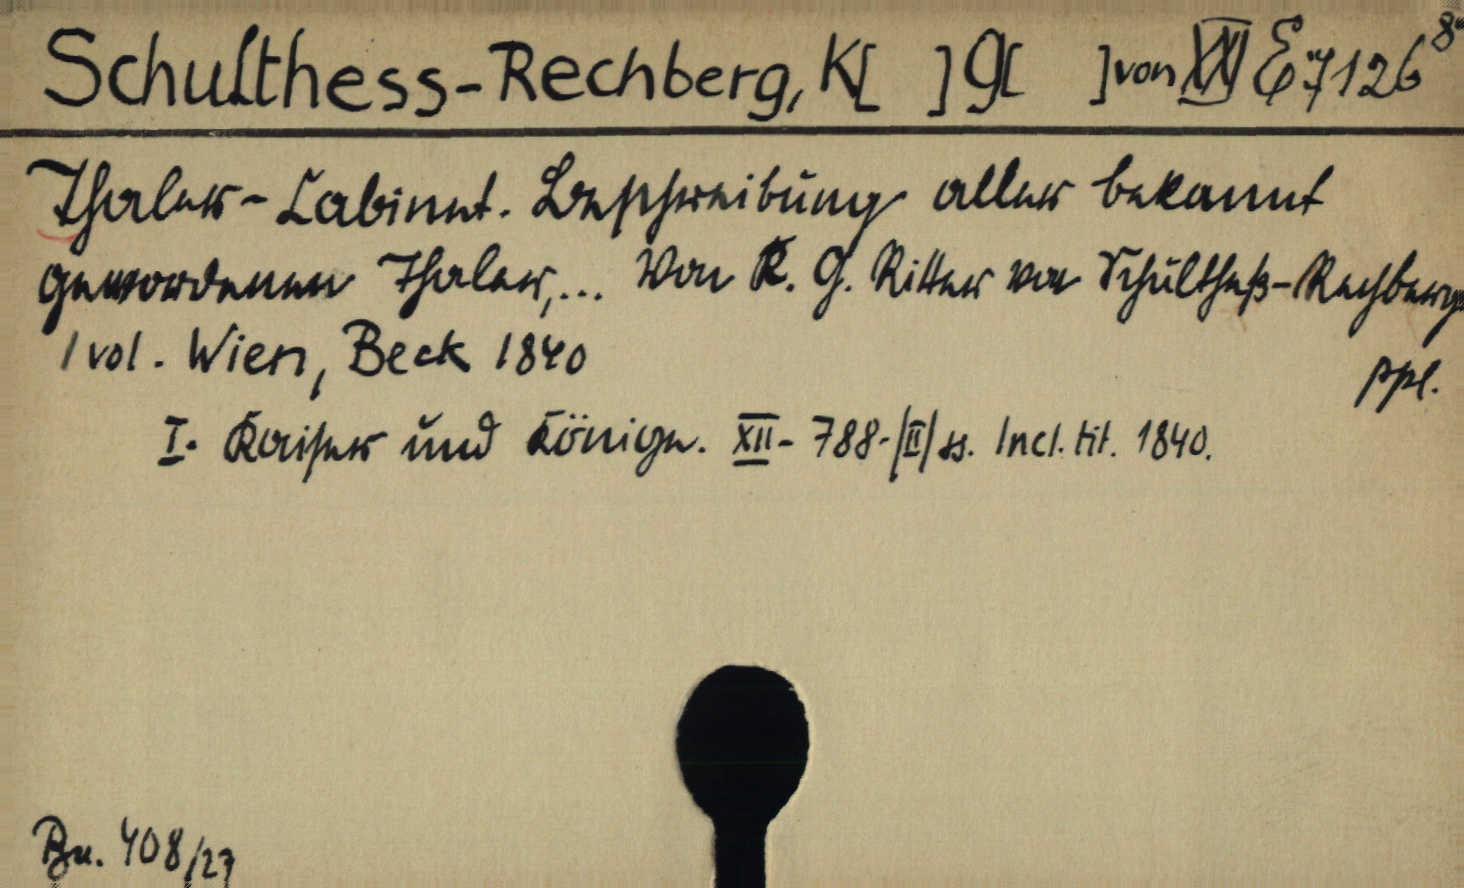 Schulthess-Rechberg, K[ ] G[ ] von XVI E 7126 8°
Thaler-Cabinet. Beschreibung aller bekannt
gewordenen Thaler,... Von K. G. Ritter von Schultheß-Rechberg
1 vol. Wien, Beck 1840
ppl.
I. Kaiser und Könige. XII- 788-/II/ ss. Incl. tit. 1840.
408/27